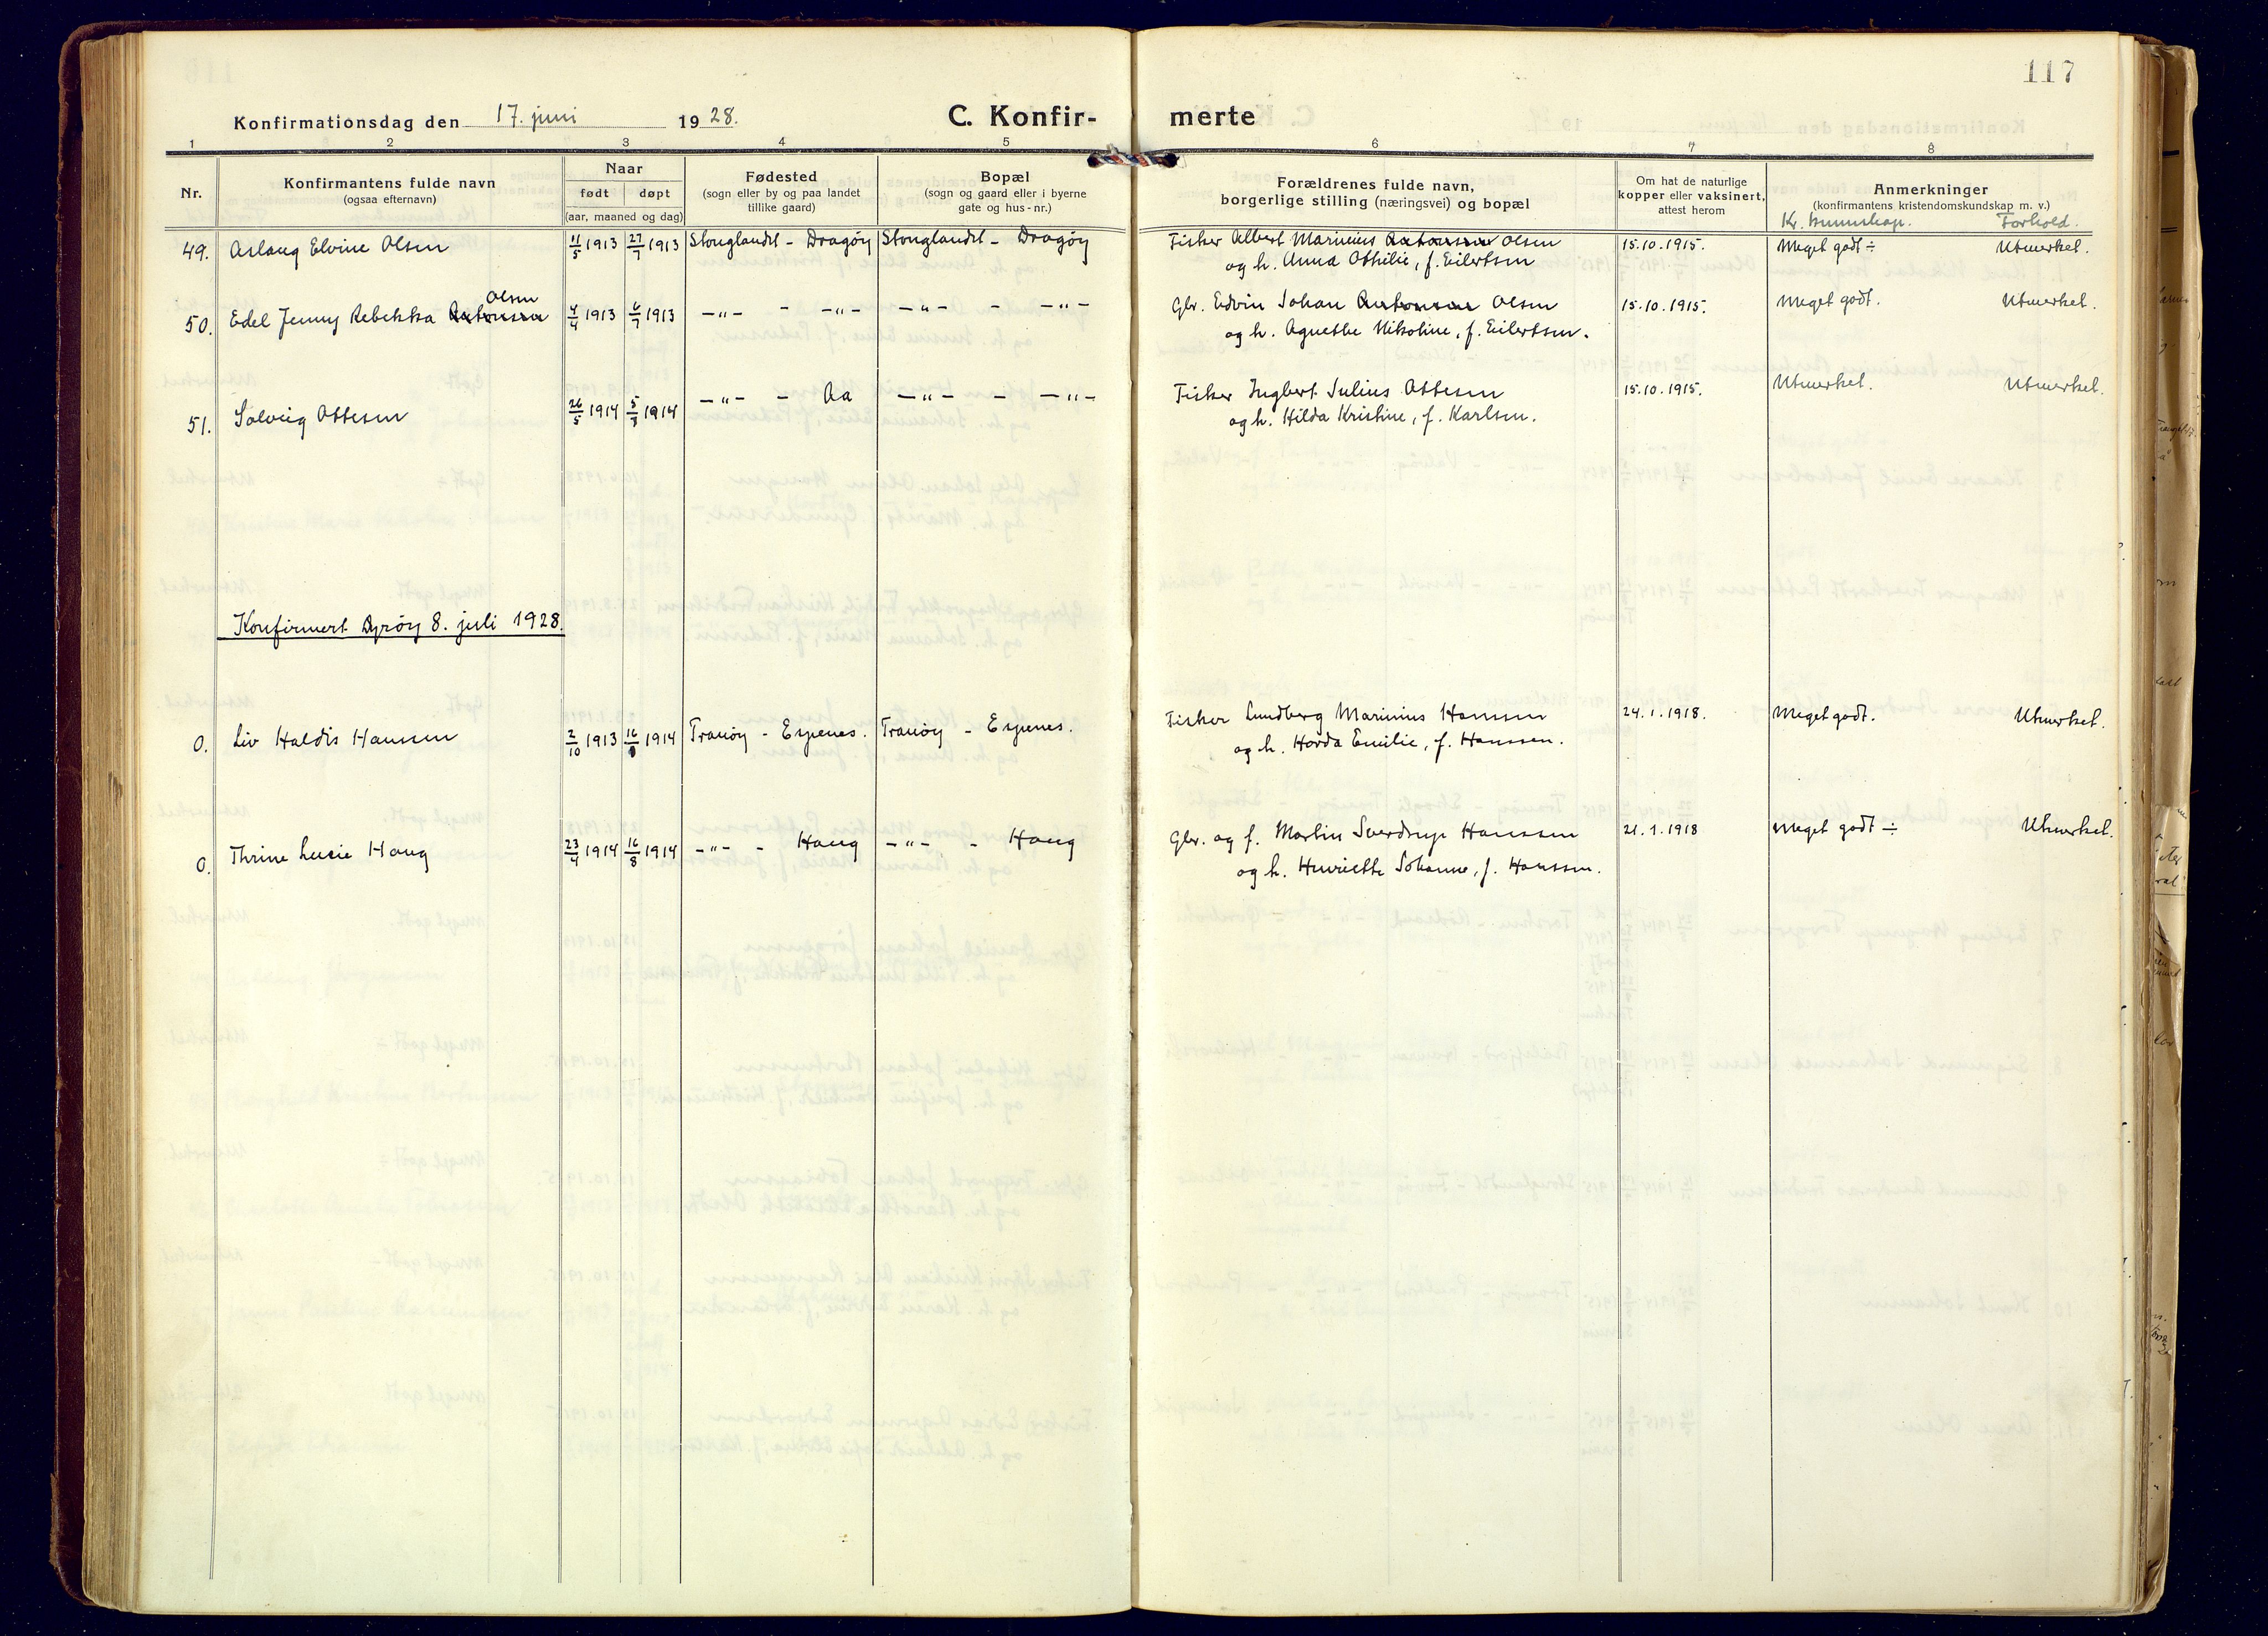 117
Konfirmationsdag den 17. juni 1928.
C. Konfir- merte
1 2 3 4 5 6 7 8
Nr.
Konfirmantens fulde navn
(ogsaa efternavn)
Naar
født døpt
(aar, maaned og dag)
Fødested
(sogn eller by og paa landet
tillike gaard)
Bopæl
(sogn og gaard eller i byerne
gate og hus-nr.)
Forældrenes fulde navn,
borgerlige stilling (næringsvei) og bopæl
Om hat de naturlige
kopper eller vaksinert,
attest herom
Anmerkninger
(konfirmantens kristendomskundskap m. v.)
Kr. kunnskap. Forhold.
49. Aslaug Elvine Olsen 11/5 1913 27/7 1913 Stonglandet - Dragöy Stonglandet - Dragöy Fisker Albert Marinius Antonsen Olsen 15.10.1915. Meget godt ÷ Utmerket.
og h. Anna Othilie, f. Eilertsen
Olsen
50. Edel Jenny Rebekka Antonsen 4/4 1913 6/7 1913 -"- - -"- -"- - -"- Gbr. Edvin Johan Antonsen Olsen 15.10.1915. Meget godt. Utmerket.
og h. Agnethe Nikoline, f. Eilertsen.
51. Solveig Ottesen 26/5 1914 5/7 1914 -"- - Aa -"- - -"- Fisker Ingbert Julius Ottesen 15.10.1915. Utmerket. Utmerket.
og h. Hilda Kristine, f. Karlsen.
Konfirmert Dyröy 8. juli 1928.
0. Liv Haldis Hansen 2/10 1913 16/8 1914 Tranöy - Espenes. Tranöy - Espenes. Fisker Lundberg Marinius Hansen 24.1.1918. Meget godt. Utmerket.
og h. Horda Emilie, f. Hanssen.
0. Thrine Lucie Haug 23/4 1914 16/8 1914 -"- - Haug -"- - Haug Gbr. og f. Martin Sverdrup Hanssen 21.1.1918 Meget godt ÷ Utmerket.
og h. Henriette Johanne, f. Hanssen.